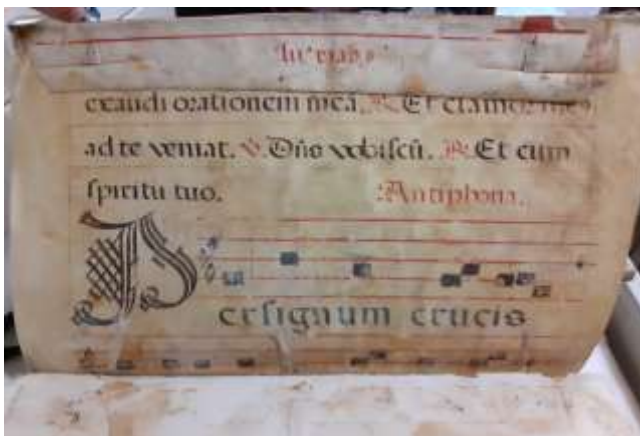 exaudi orationem meā. ℟. Et clamor meus
ad te veniat. ℣. Dn̄s vobiscū. ℟. Et cum
spiritu tuo. Antiphona.
Per signum crucis